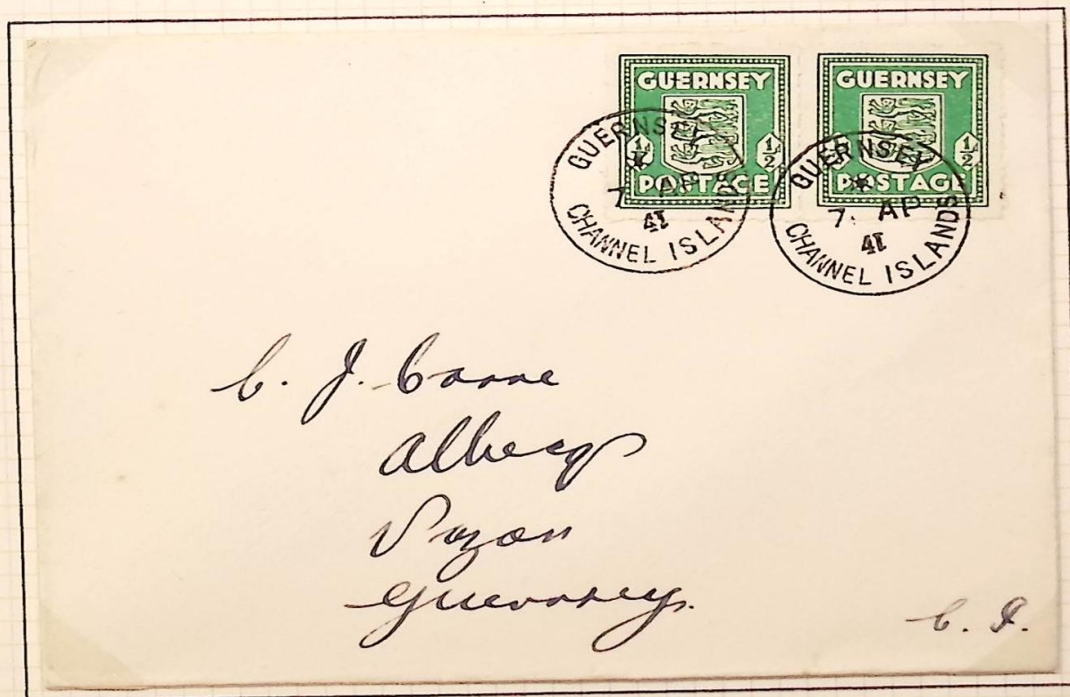 GUERNSEY
½ ½
POSTAGE
GUERNSEY
½ ½
POSTAGE
GUERNSEY
7 AP
41
CHANNEL ISLANDS
GUERNSEY
7. AP
41
CHANNEL ISLANDS
C. J. Carre
Albecq
Vazon
Guernsey.
C. I.